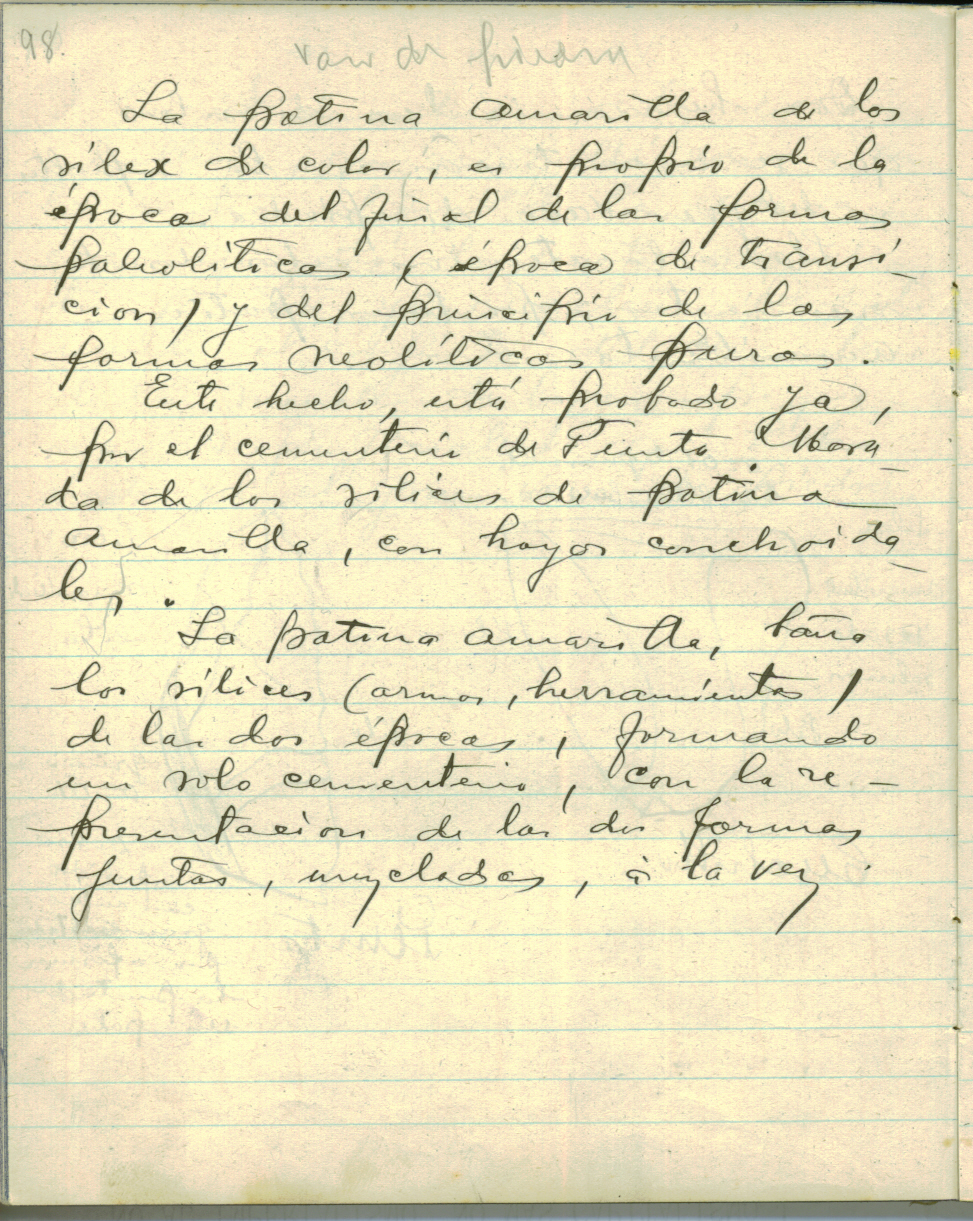 98.
La patina amarilla de los
silex de color, es propio de la
época del final de las formas
paleolíticas (época de transi-
cion) y del principio de las
formas neolíticas puras.
Este hecho, está probado ya,
por el cementerio de Punta Mora-
da de los silices de patina
amarilla, con hoyos conchoida-
les.
La patina amarilla, baña
los silices (armas, herramientas)
de las dos épocas, formando
un solo cementerio, con la re-
presentacion de las dos formas
juntas, mezcladas, á la vez.